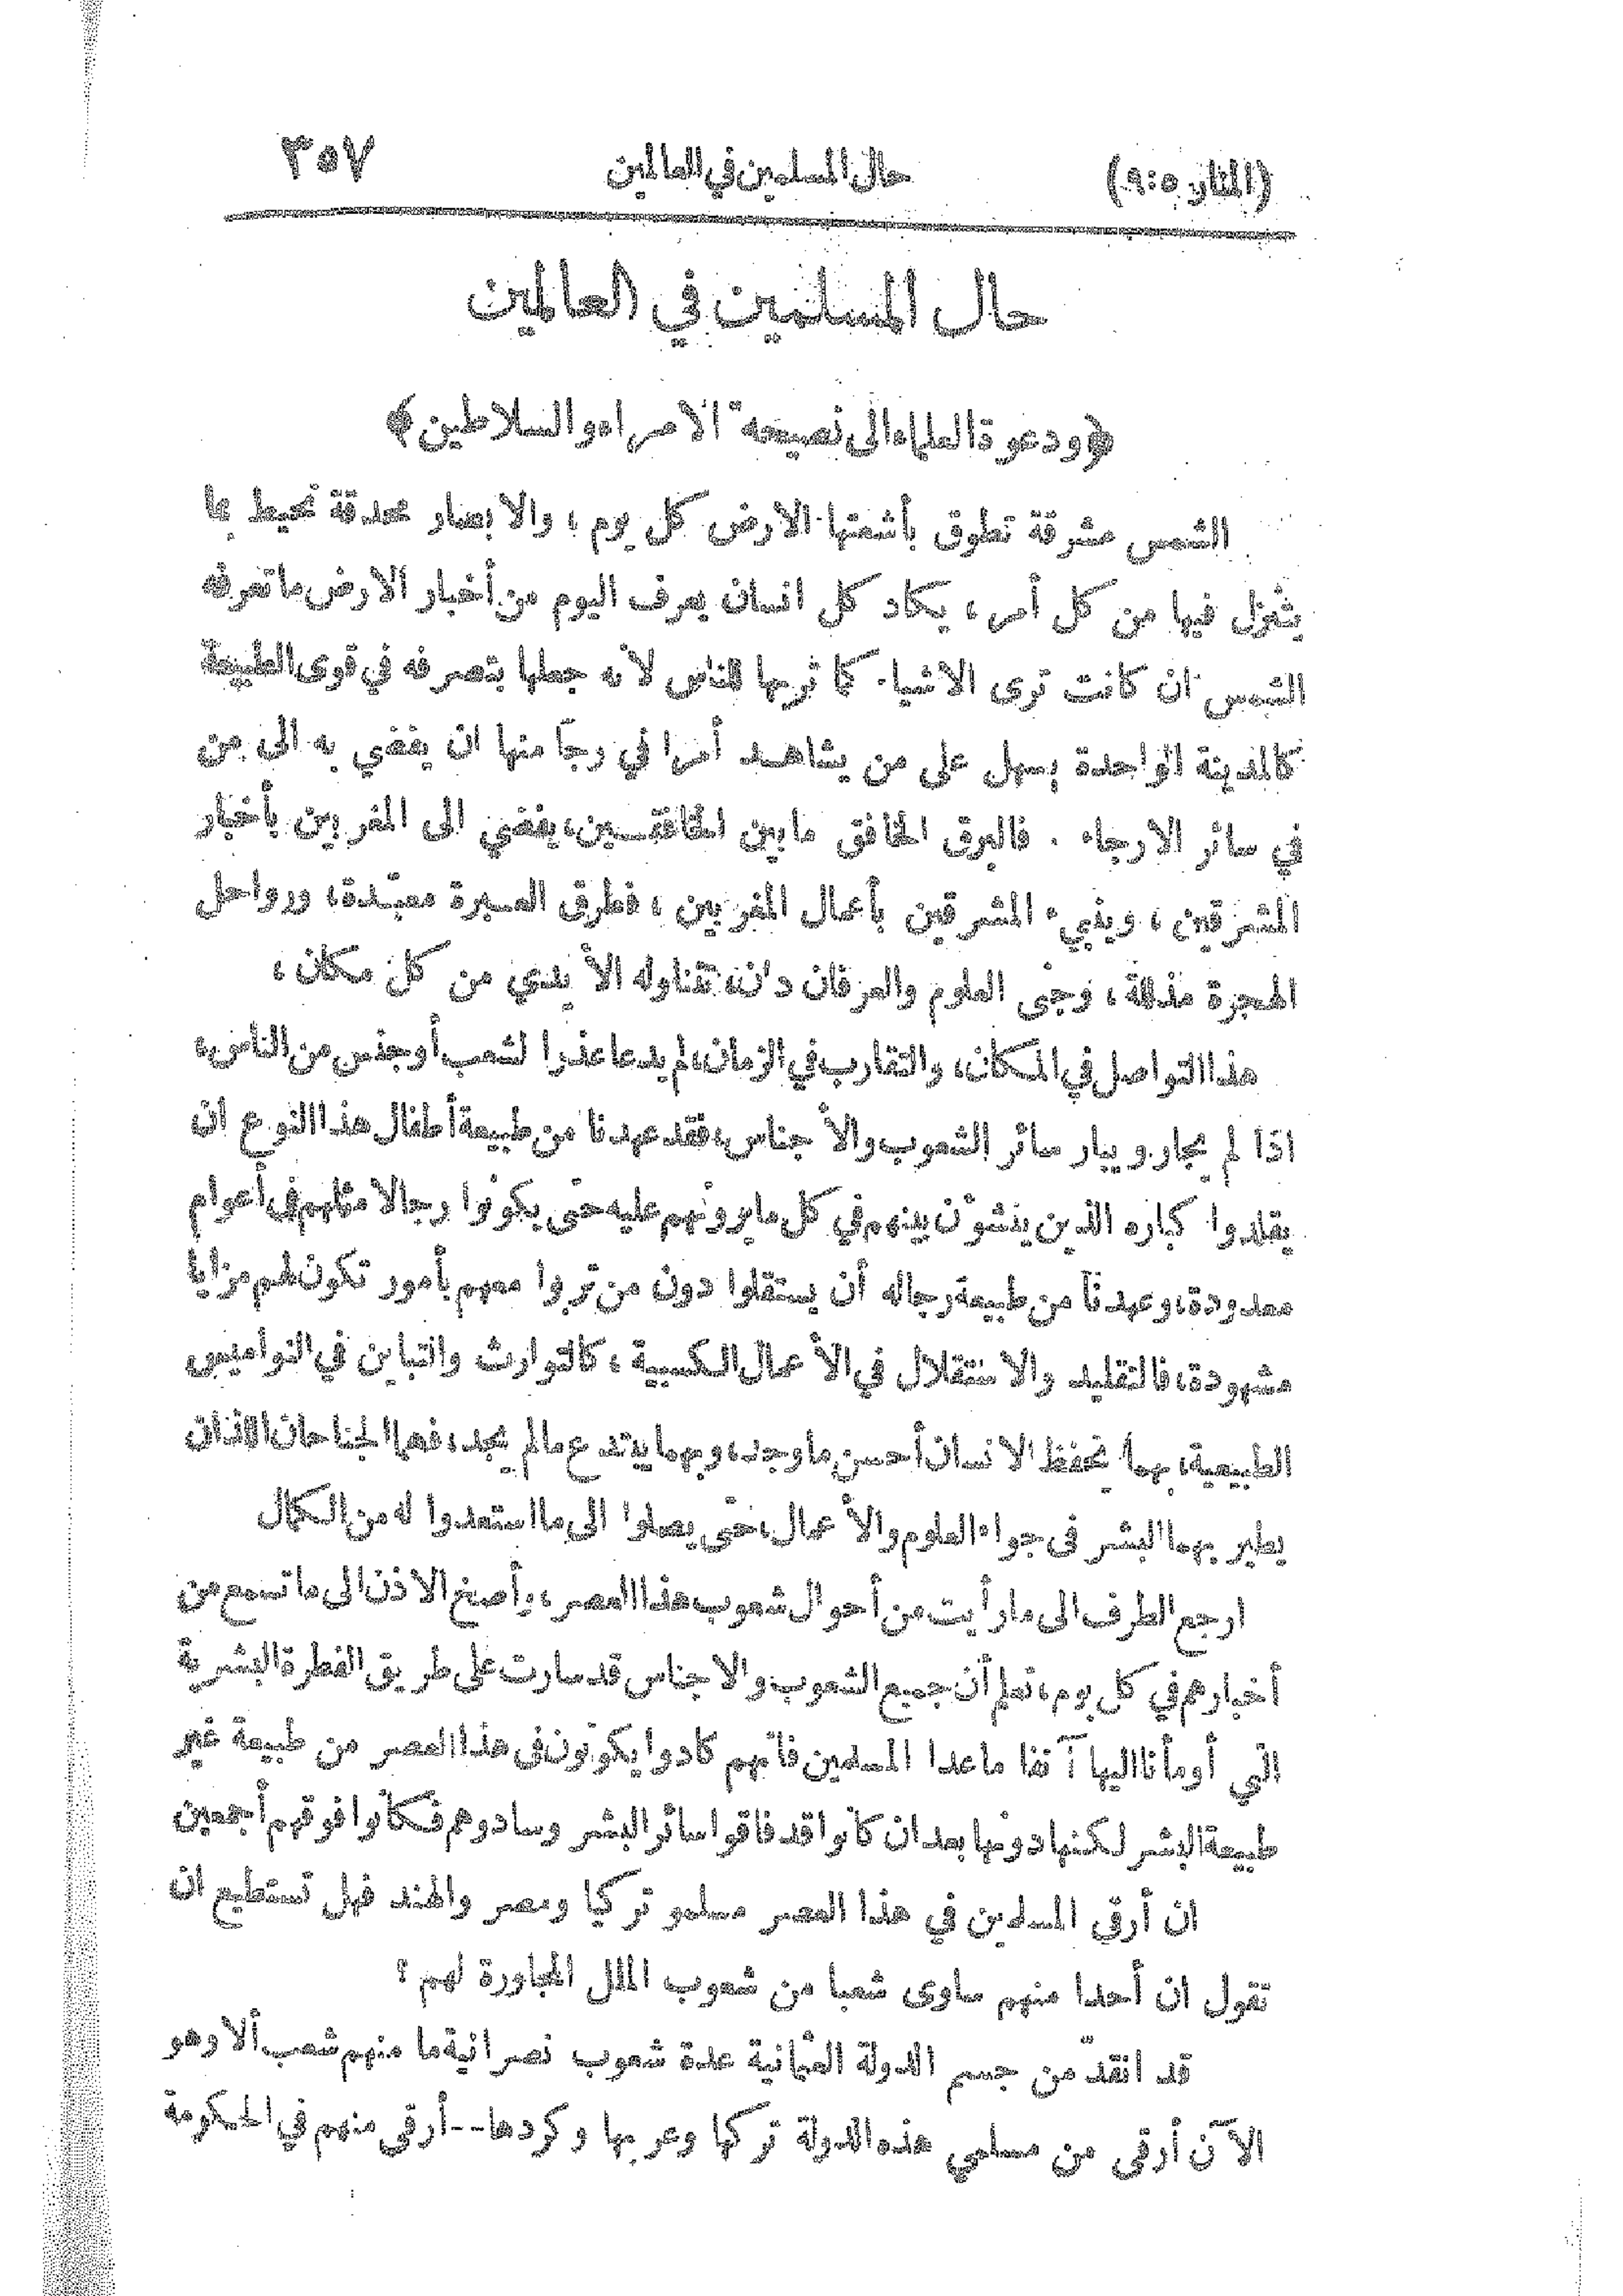 (المنار ٥:٩) حال المسلمين في العالمين ٣٥٧
حال المسلمين في العالمين
﴿ ودعوة العلماء الى نصيحة الامراء والسلاطين ﴾
الشمس مشرقة تطوق بأشعتها الارض كل يوم ، والابصار محدقة تحيط بما
يتنزل فيها من كل أمر ، يكاد كل انسان يعرف اليوم من أخبار الارض ما تعرفه
الشمس ان كانت ترى الاشياء كما تريها للناس لأنه جعلها بتصرفه في قوى الطبيعة
كالمدينة الواحدة يسهل على من يشاهد أمرا في رجا منها ان يفضي به الى من
في سائر الارجاء . فالبرق الخافق ما بين الخافقين ، يفضي الى المغربين بأخبار
المشرقين ، وينبيء المشرقين بأعمال المغربين ، فطرق العبرة معبّدة ، ورواحل
الهجرة مذللة ، وجنى العلوم والعرفان دان، تتناوله الأيدي من كل مكان ،
هذا التواصل في المكان، والتقارب في الزمان، لم يدعا عذرا لشعب أو جنس من الناس،
اذا لم يجار ويبار سائر الشعوب والأجناس ، فقد عهدنا من طبيعة أطفال هذا النوع ان
يقلدوا كباره الذين ينشؤن بينهم في كل ما يرونهم عليه حتى يكونوا رجالا مثلهم في أعوام
معدودة، وعهدنا من طبيعة رجاله أن يستقلوا دون من تربوا معهم بأمور تكون لهم مزايا
مشهودة، فالتقليد والاستقلال في الأعمال الكسبية ، كالتوارث والتباين في النواميس
الطبيعية، بهما يحفظ الانسان أحسن ما وجد، وبهما يبتدع ما لم يجد، فهما الجناحان اللذان
يطير بهما البشر في جواء العلوم والأعمال، حتى يصلوا الى ما استعدوا له من الكمال
ارجع الطرف الى ما رأيت من أحوال شعوب هذا العصر، وأصخ الاذن الى ما تسمع من
أخبارهم في كل يوم، تعلم أن جميع الشعوب والاجناس قد سارت على طريق الفطرة البشرية
التي أومأنا اليها آنفا ما عدا المسلمين فانهم كادوا يكونون في هذا العصر من طبيعة غير
طبيعة البشر لكنها دونها بعد ان كانوا قد فاقوا سائر البشر وسادوهم فكانوا فوقهم أجمعين
ان أرقى المسلمين في هذا العصر مسلمو تركيا ومصر والهند فهل تستطيع ان
تقول ان أحدا منهم ساوى شعبا من شعوب الملل المجاورة لهم ؟
قد انقدّ من جسم الدولة العثمانية عدة شعوب نصرانية ما منهم شعب ألا وهو
الآن أرقى من مسلمي هذه الدولة تركها وعربها وكردها -- أرقى منهم في الحكومة